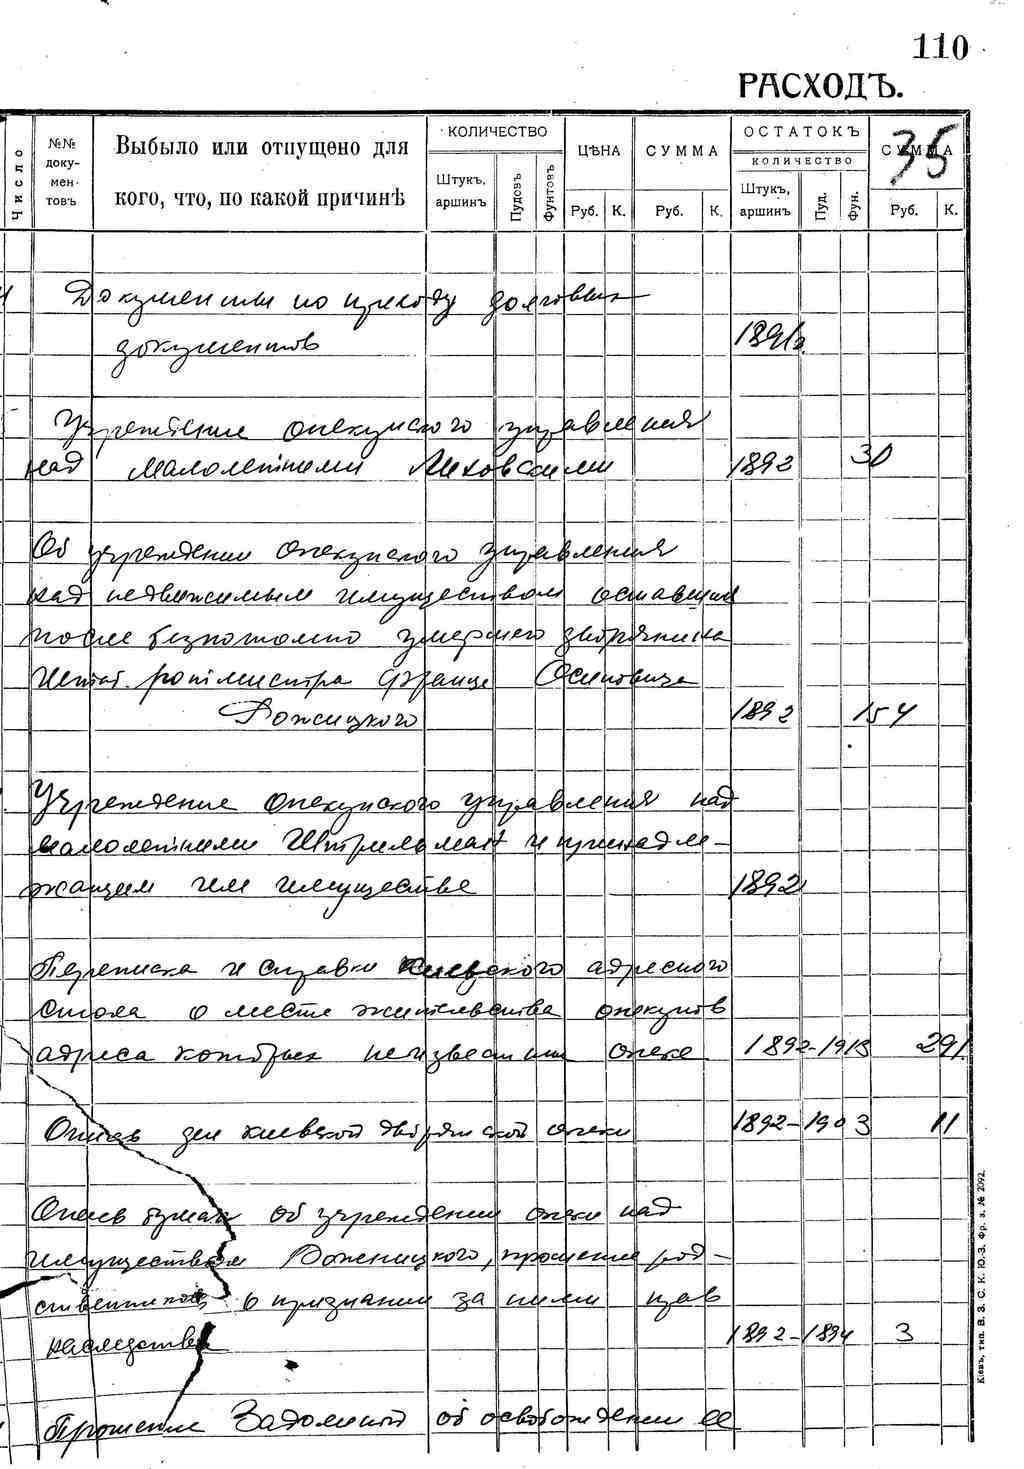 110
РАСХОДЪ.
35
Число
№№ доку-мен-товъ
Выбыло или отпущено для
кого, что, по какой причинѣ
КОЛИЧЕСТВО
Штукъ, аршинъ
Пудовъ
Фунтовъ
ЦѢНА
Руб. К.
СУММА
Руб. К.
ОСТАТОКЪ
КОЛИЧЕСТВО
Штукъ, аршинъ
Пуд.
Фун.
СУММА
Руб. К.
Документы по приходу долговых
документов 1891г.
Учреждение опекунского управления
над малолетними 1892 30
Об учреждении опекунского управления
над недвижимым имуществом оставшимся
после безпотомно умершего дворянина
Штаб. ротмистра Франца Осиповича
Рожицкого 1892 154
Учреждение опекунского управления над
малолетними Штрильман и принадле-
жащем им имуществе 1892
Переписка и справки Киевского адресного
стола о месте жительства опекунов
адреса которых неизвестны опеке 1892-1913 291
Опись дел киевской дворянской опеки 1892-1903 11
Опись бумаг об учреждении опеки над
имуществом Рожицкого, прошение род-
ственников о признании за ними прав
наследства 1892-1894 3
Прошение об освобождении ее
Кіевъ, тип. В. З. С. К. Ю.-З. Фр. з. № 2092.